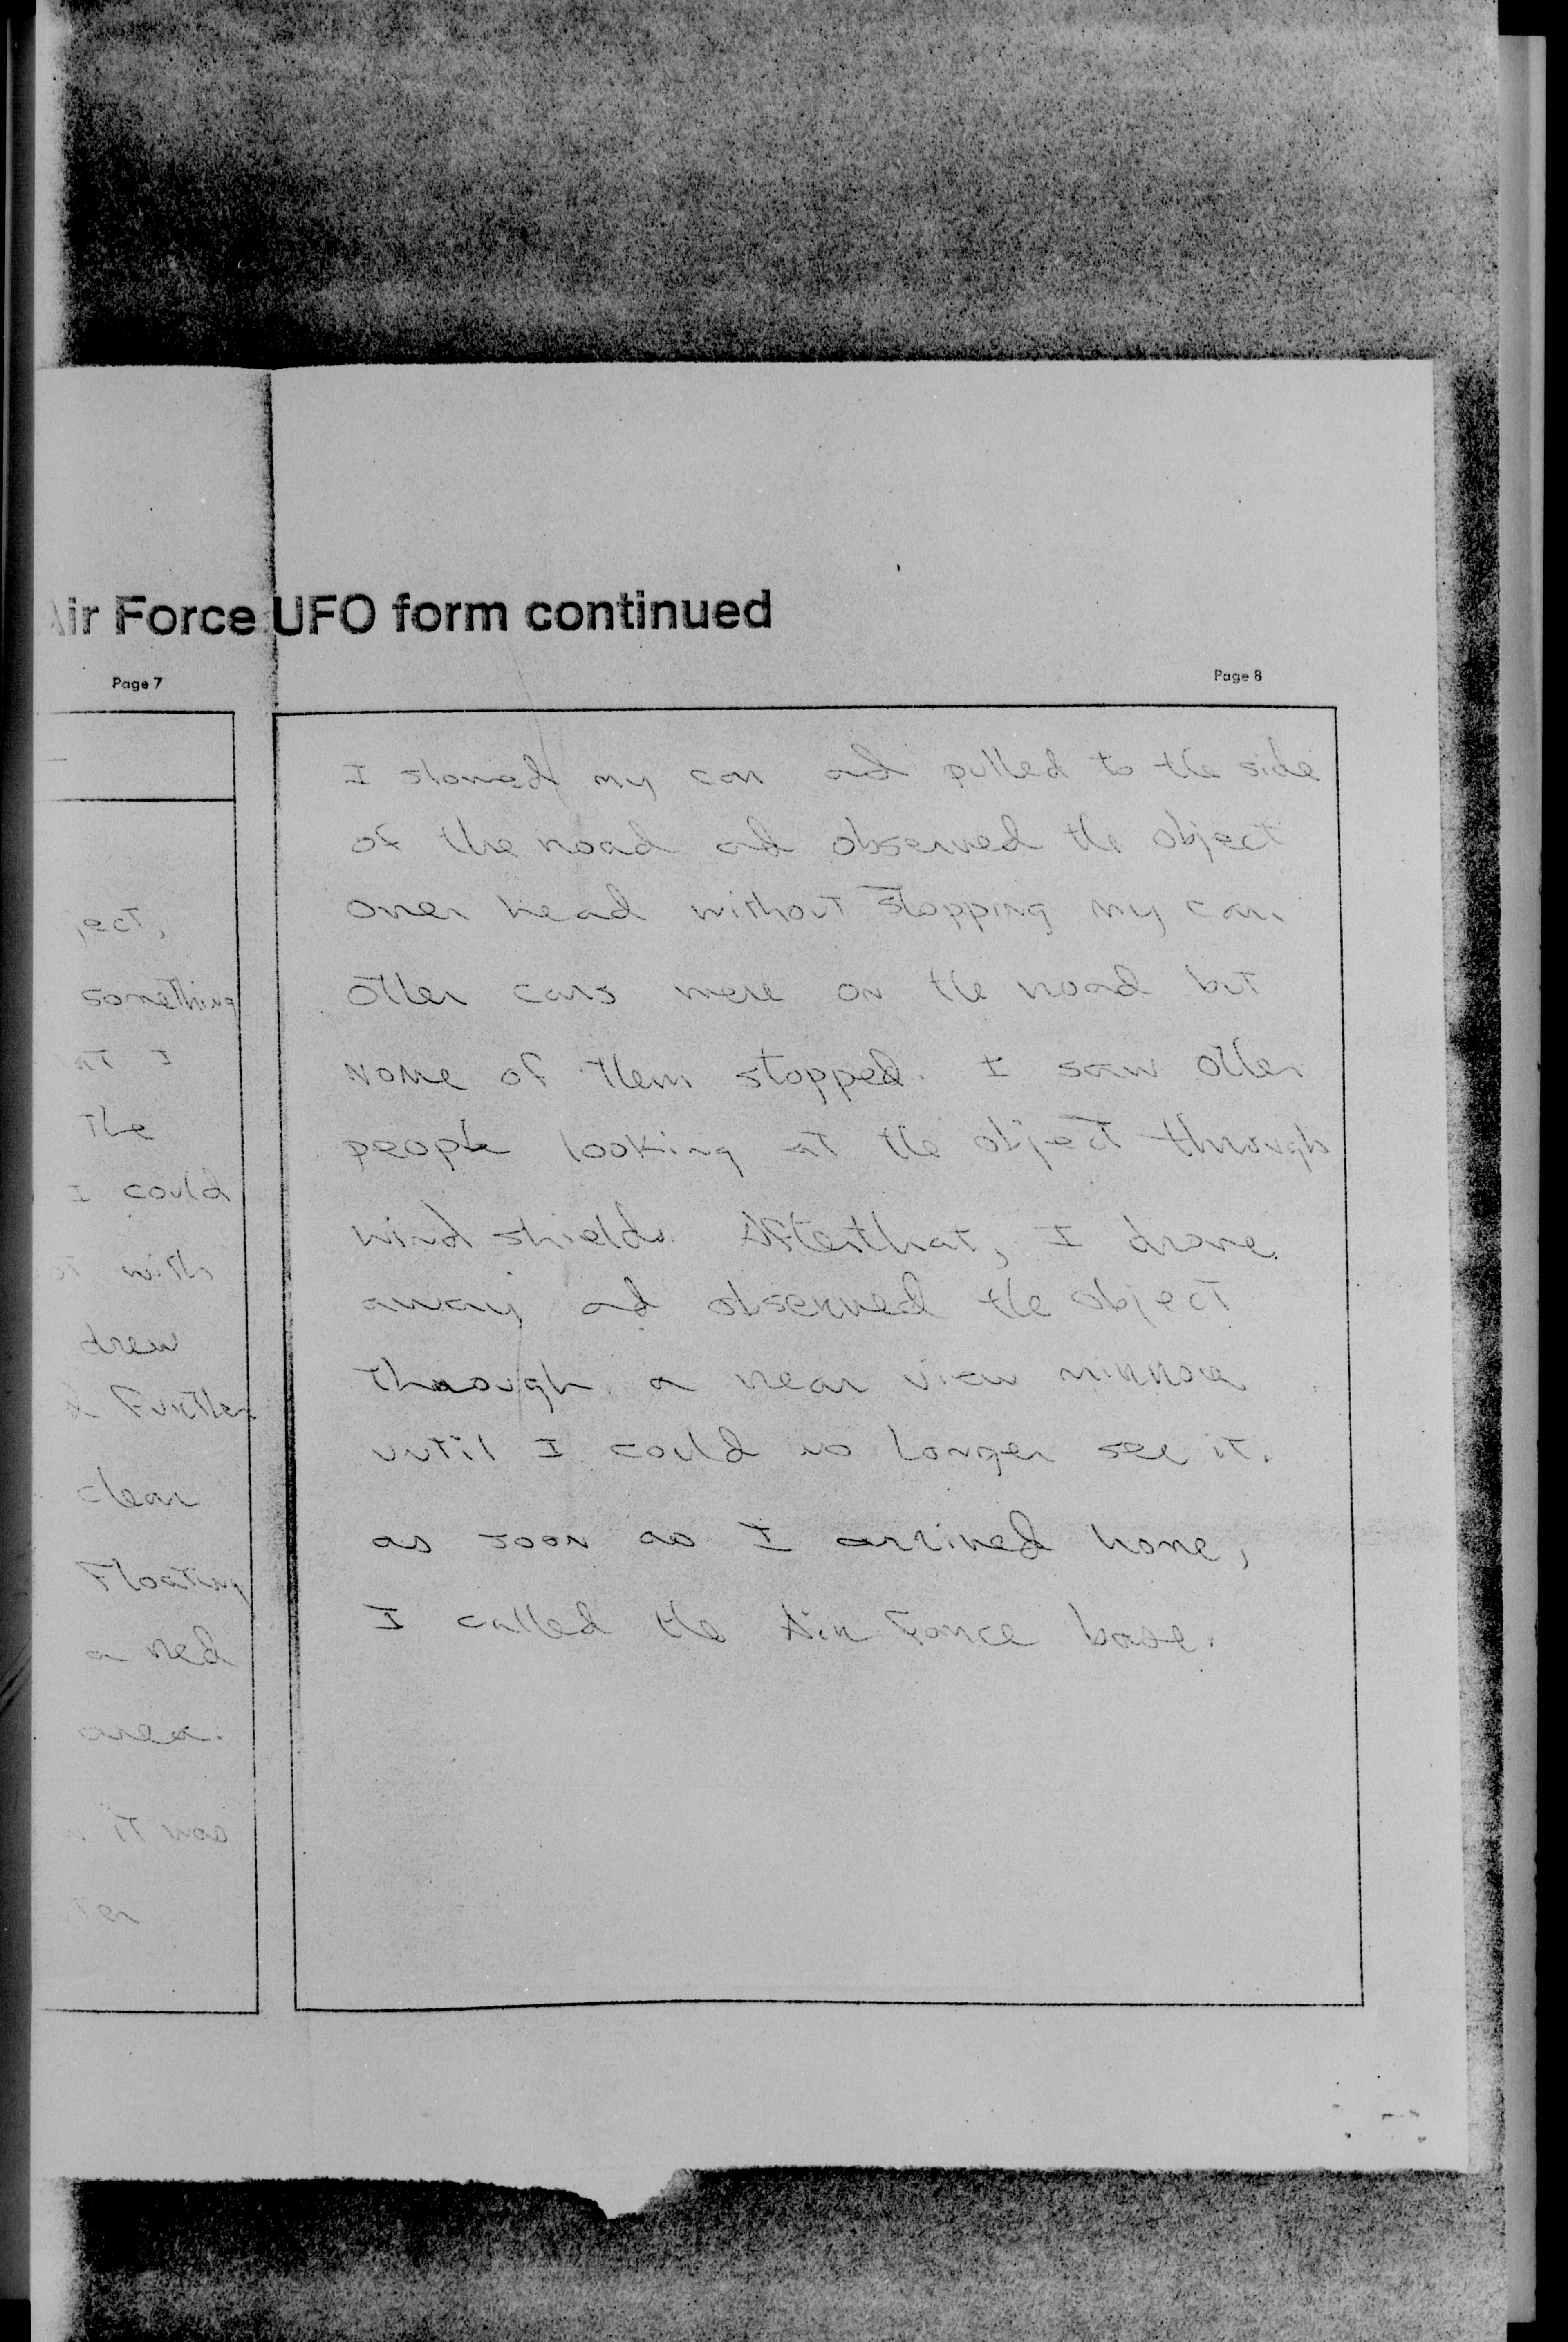 Air Force UFO form continued
Page 7
ject,
something
at I
the
I could
with
drew
Further
clear
Floating
a red
area.
it was
Page 8
I slowed my car and pulled to the side
of the road and observed the object
over head without stopping my car.
Other cars were on the road but
none of them stopped. I saw other
people looking at the object through
wind shields. After that, I drove
away and observed the object
through a rear view mirror
until I could no longer see it.
as soon as I arrived home,
I called the Air Force base.